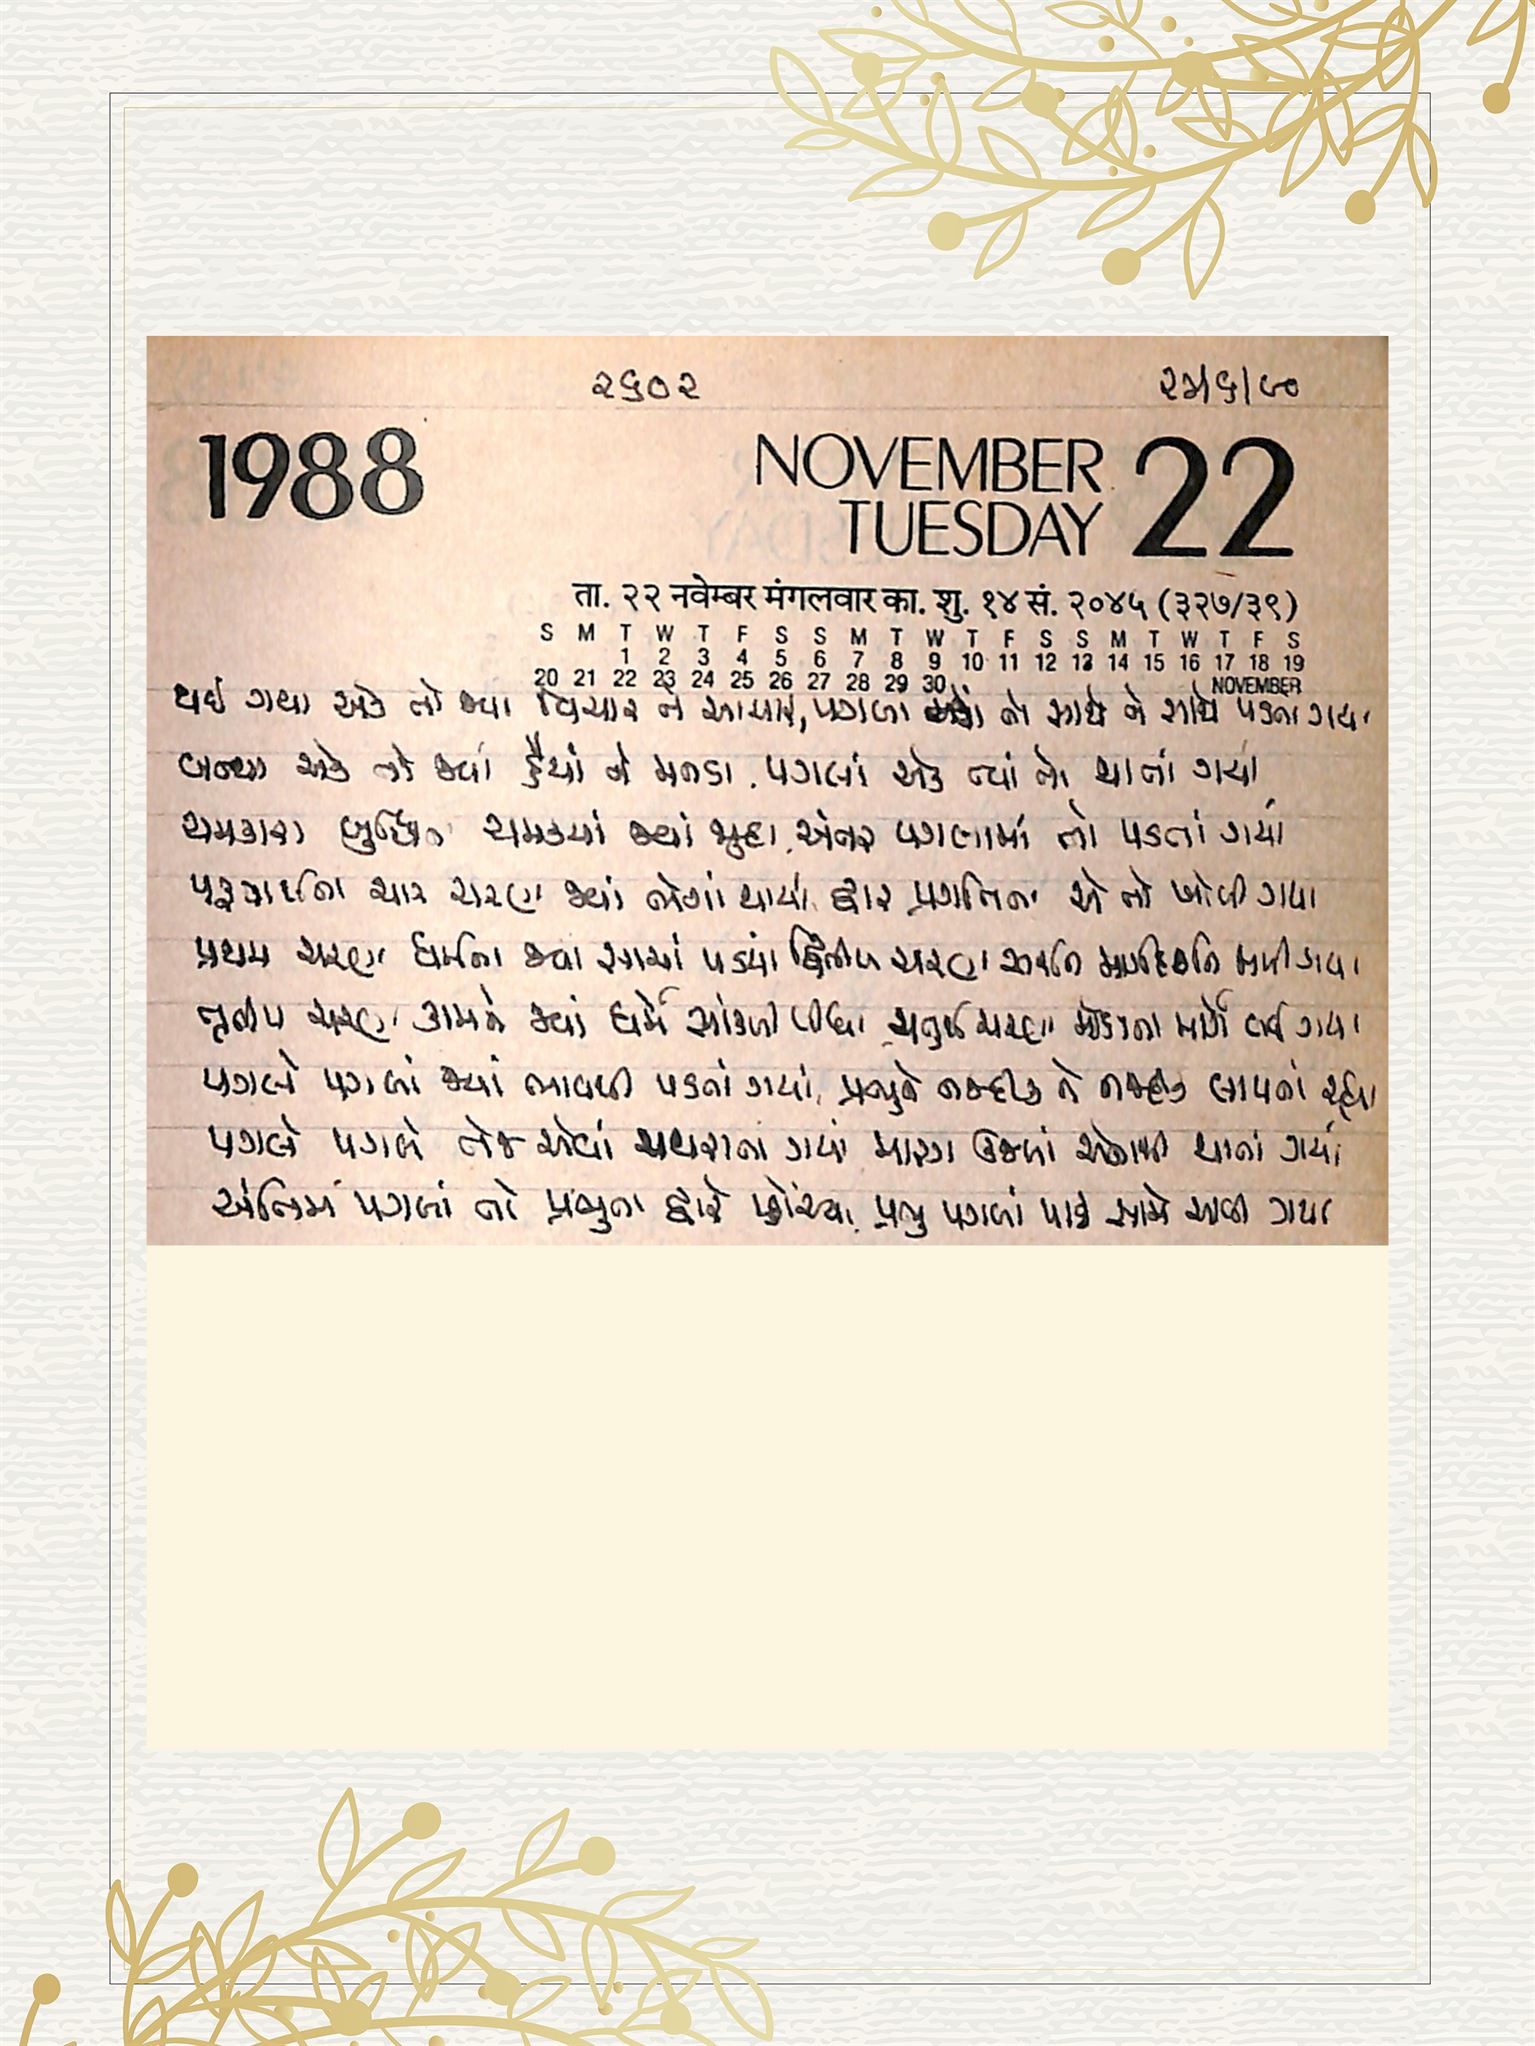 ૨૬૦૨ ૨૫/૬/૯૦
1988 NOVEMBER 22
TUESDAY
ता. २२ नवेम्बर मंगलवार का. शु. १४ सं. २०४५ (३२७/३९)
S M T W T F S S M T W T F S S M T W T F S
1 2 3 4 5 6 7 8 9 10 11 12 13 14 15 16 17 18 19
20 21 22 23 24 25 26 27 28 29 30 NOVEMBER
થઈ ગયા એક તો જ્યાં વિચાર ને આચાર, પગલા તો સાથે ને સાથે પડતા ગયા
બન્યા એક તો જ્યાં હૈયાં ને મનડા. પગલાં એક ત્યાં તો થાતાં ગયાં
ચમકારા બુદ્ધિના ચમક્યાં જ્યાં જુદા, અંતર પગલામાં તો પડતાં ગયાં
પુરૂષાર્થના ચાર ચરણ જ્યાં ભેગાં થાયા, દ્વાર પ્રગતિના એ તો ખોલી ગયા
પ્રથમ ચરણ ધર્મના જ્યાં સાચાં પડ્યાં દ્વિતીય ચરણ મળી ગયા
તૃતીય ચરણ કામને જ્યાં ધર્મે સાંકળી લીધા ચતુર્થ ચરણ મોક્ષના માર્ગે લઈ ગયા
પગલે પગલાં જ્યાં ભાવથી પડતાં ગયાં, પ્રભુને નજદીક ને નજદીક લાવતાં રહ્યાં
પગલે પગલે તેજ એવાં પથરાતા ગયાં મારગ ઉજળાં એનાથી થાતાં ગયાં
અંતિમ પગલાં તો પ્રભુના દ્વારે પ્હોંચ્યા, પ્રભુ પગલાં પાડી સામે આવી ગયા